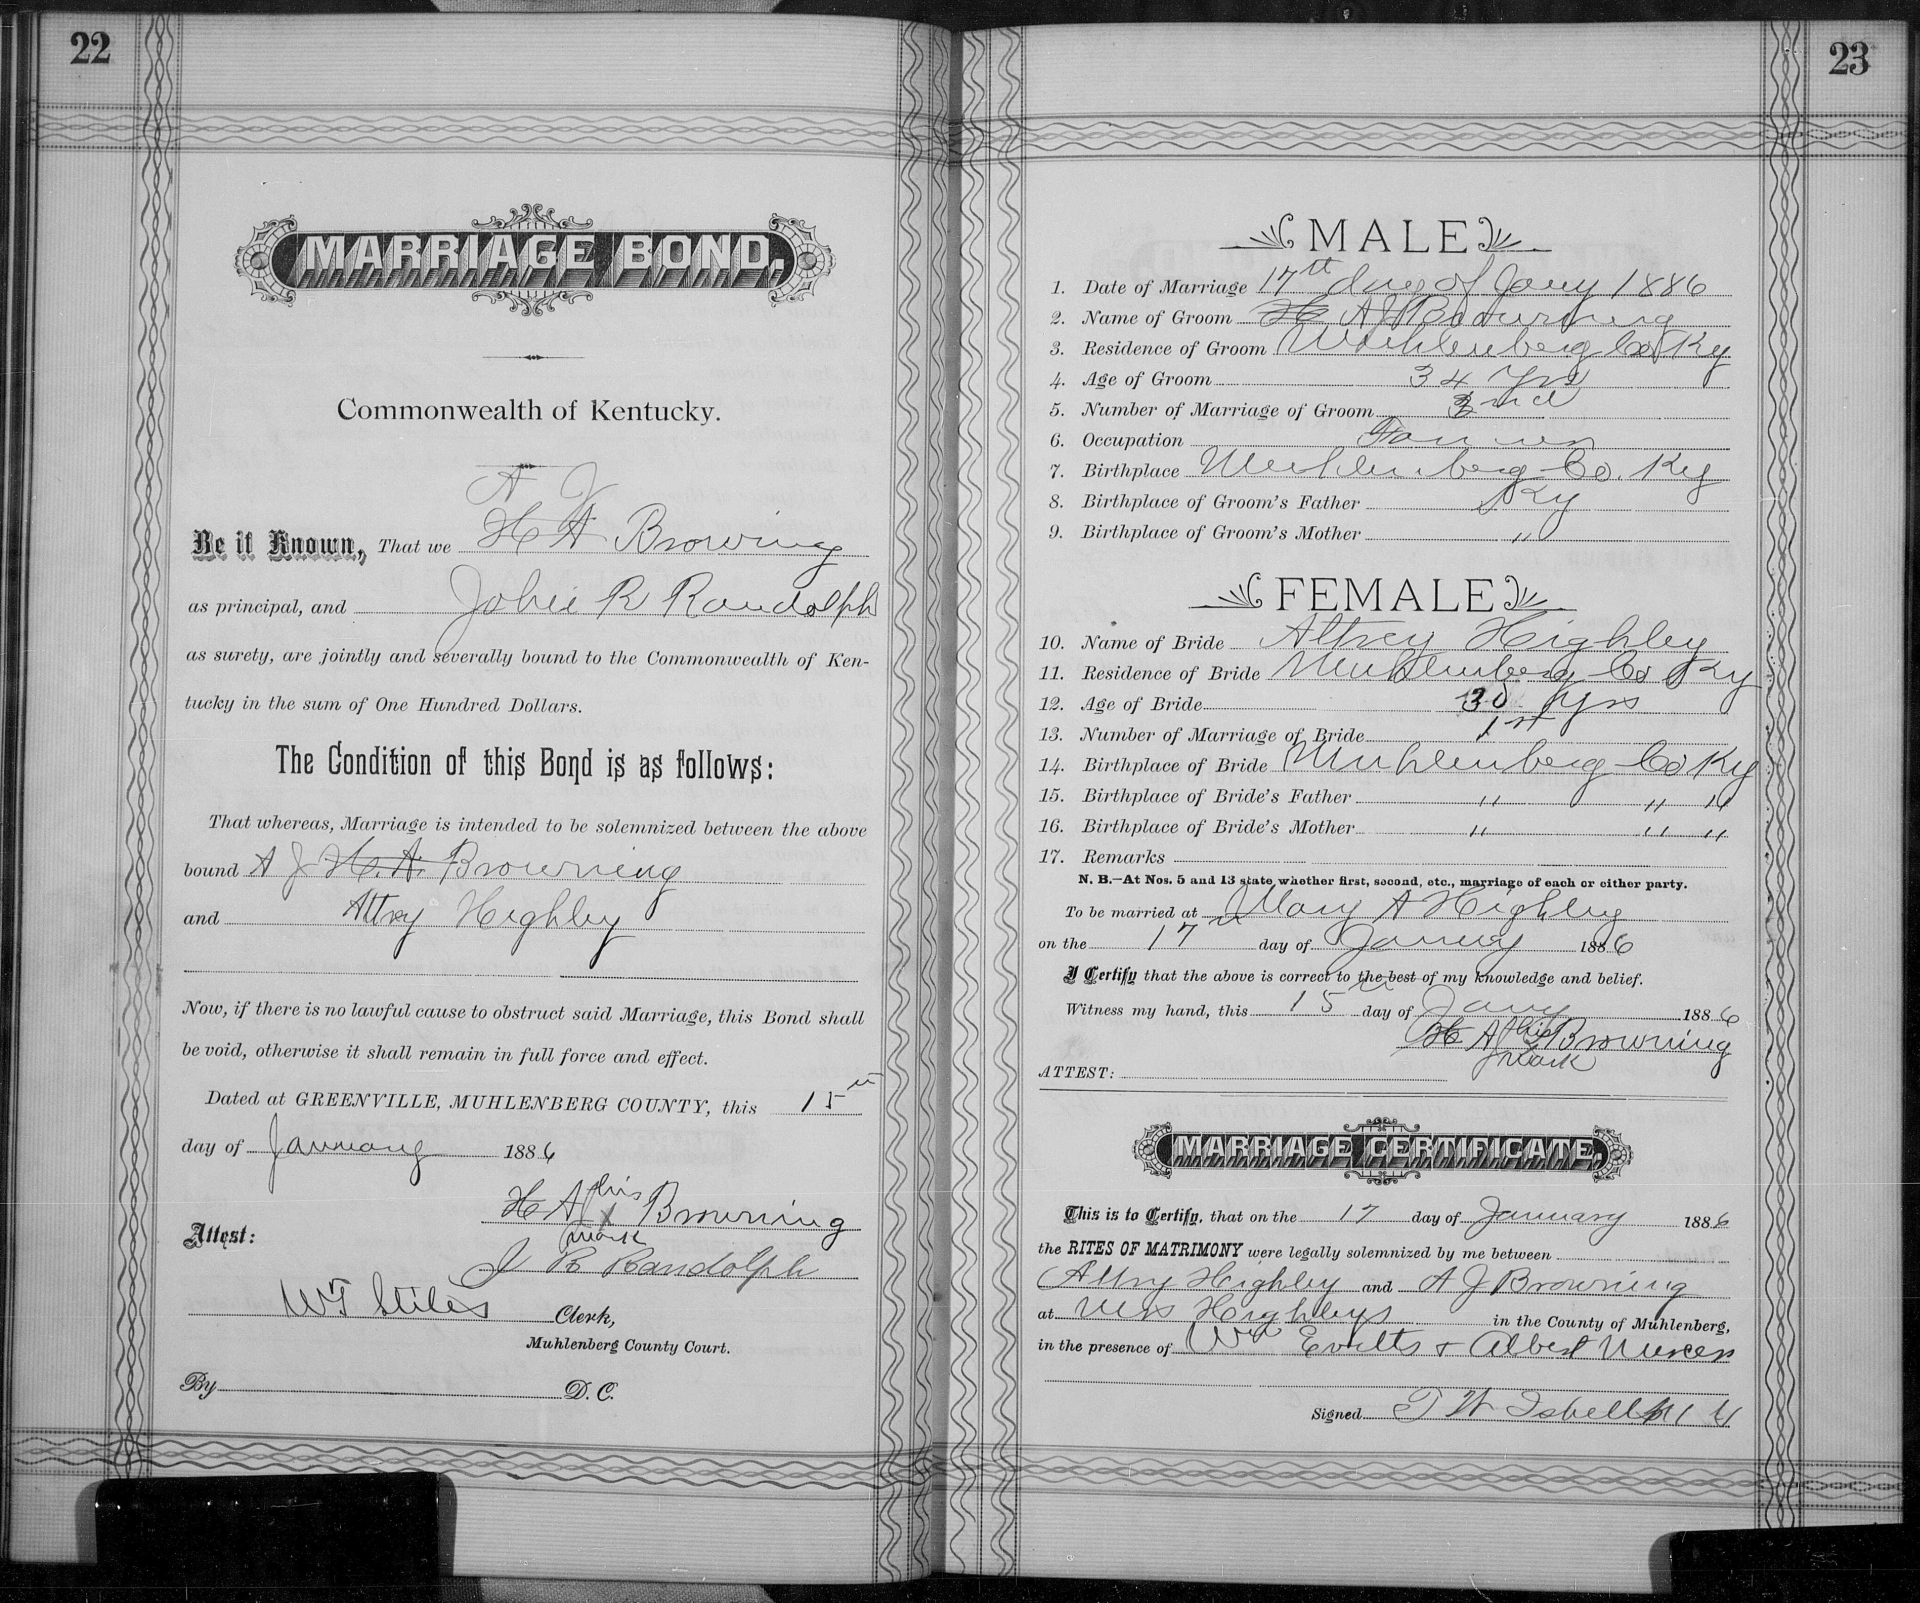 22
MARRIAGE BOND.
Commonwealth of Kentucky.
A J
Be it Known, That we H A Browing
as principal, and John R Randolph
as surety, are jointly and severally bound to the Commonwealth of Ken-
tucky in the sum of One Hundred Dollars.
The Condition of this Bond is as follows:
That whereas, Marriage is intended to be solemnized between the above
bound A J H. A. Browning
and Altrey Highley
Now, if there is no lawful cause to obstruct said Marriage, this Bond shall
be void, otherwise it shall remain in full force and effect.
Dated at GREENVILLE, MUHLENBERG COUNTY, this 15th
day of January 1886
H A J his Browning
x
mark
Attest: J R Randolph
WT Stiles Clerk,
Muhlenberg County Court.
By D. C.
23
MALE
1. Date of Marriage 17th day of Jany 1886
2. Name of Groom H A J Browning
3. Residence of Groom Muhlenberg Co Ky
4. Age of Groom 34 yrs
5. Number of Marriage of Groom 2nd
6. Occupation Farmer
7. Birthplace Muhlenberg Co. Ky
8. Birthplace of Groom's Father Ky
9. Birthplace of Groom's Mother "
FEMALE
10. Name of Bride Altrey Highley
11. Residence of Bride Muhlenberg Co Ky
12. Age of Bride 30 Yrs
13. Number of Marriage of Bride 1st
14. Birthplace of Bride Muhlenberg Co Ky
15. Birthplace of Bride's Father " " "
16. Birthplace of Bride's Mother " " "
17. Remarks
N. B.—At Nos. 5 and 13 state whether first, second, etc., marriage of each or either party.
To be married at Mary A Highley
on the 17th day of January 1886
I Certify that the above is correct to the best of my knowledge and belief.
Witness my hand, this 15th day of Jany 1886
H A J his Browning
mark
ATTEST:
MARRIAGE CERTIFICATE.
This is to Certify, that on the 17 day of January 1886
the RITES OF MATRIMONY were legally solemnized by me between
Altry Highley and A J Browning
at Mrs Highleys in the County of Muhlenberg,
in the presence of Wm Evitts + Albert Mercer
Signed T W Isbell